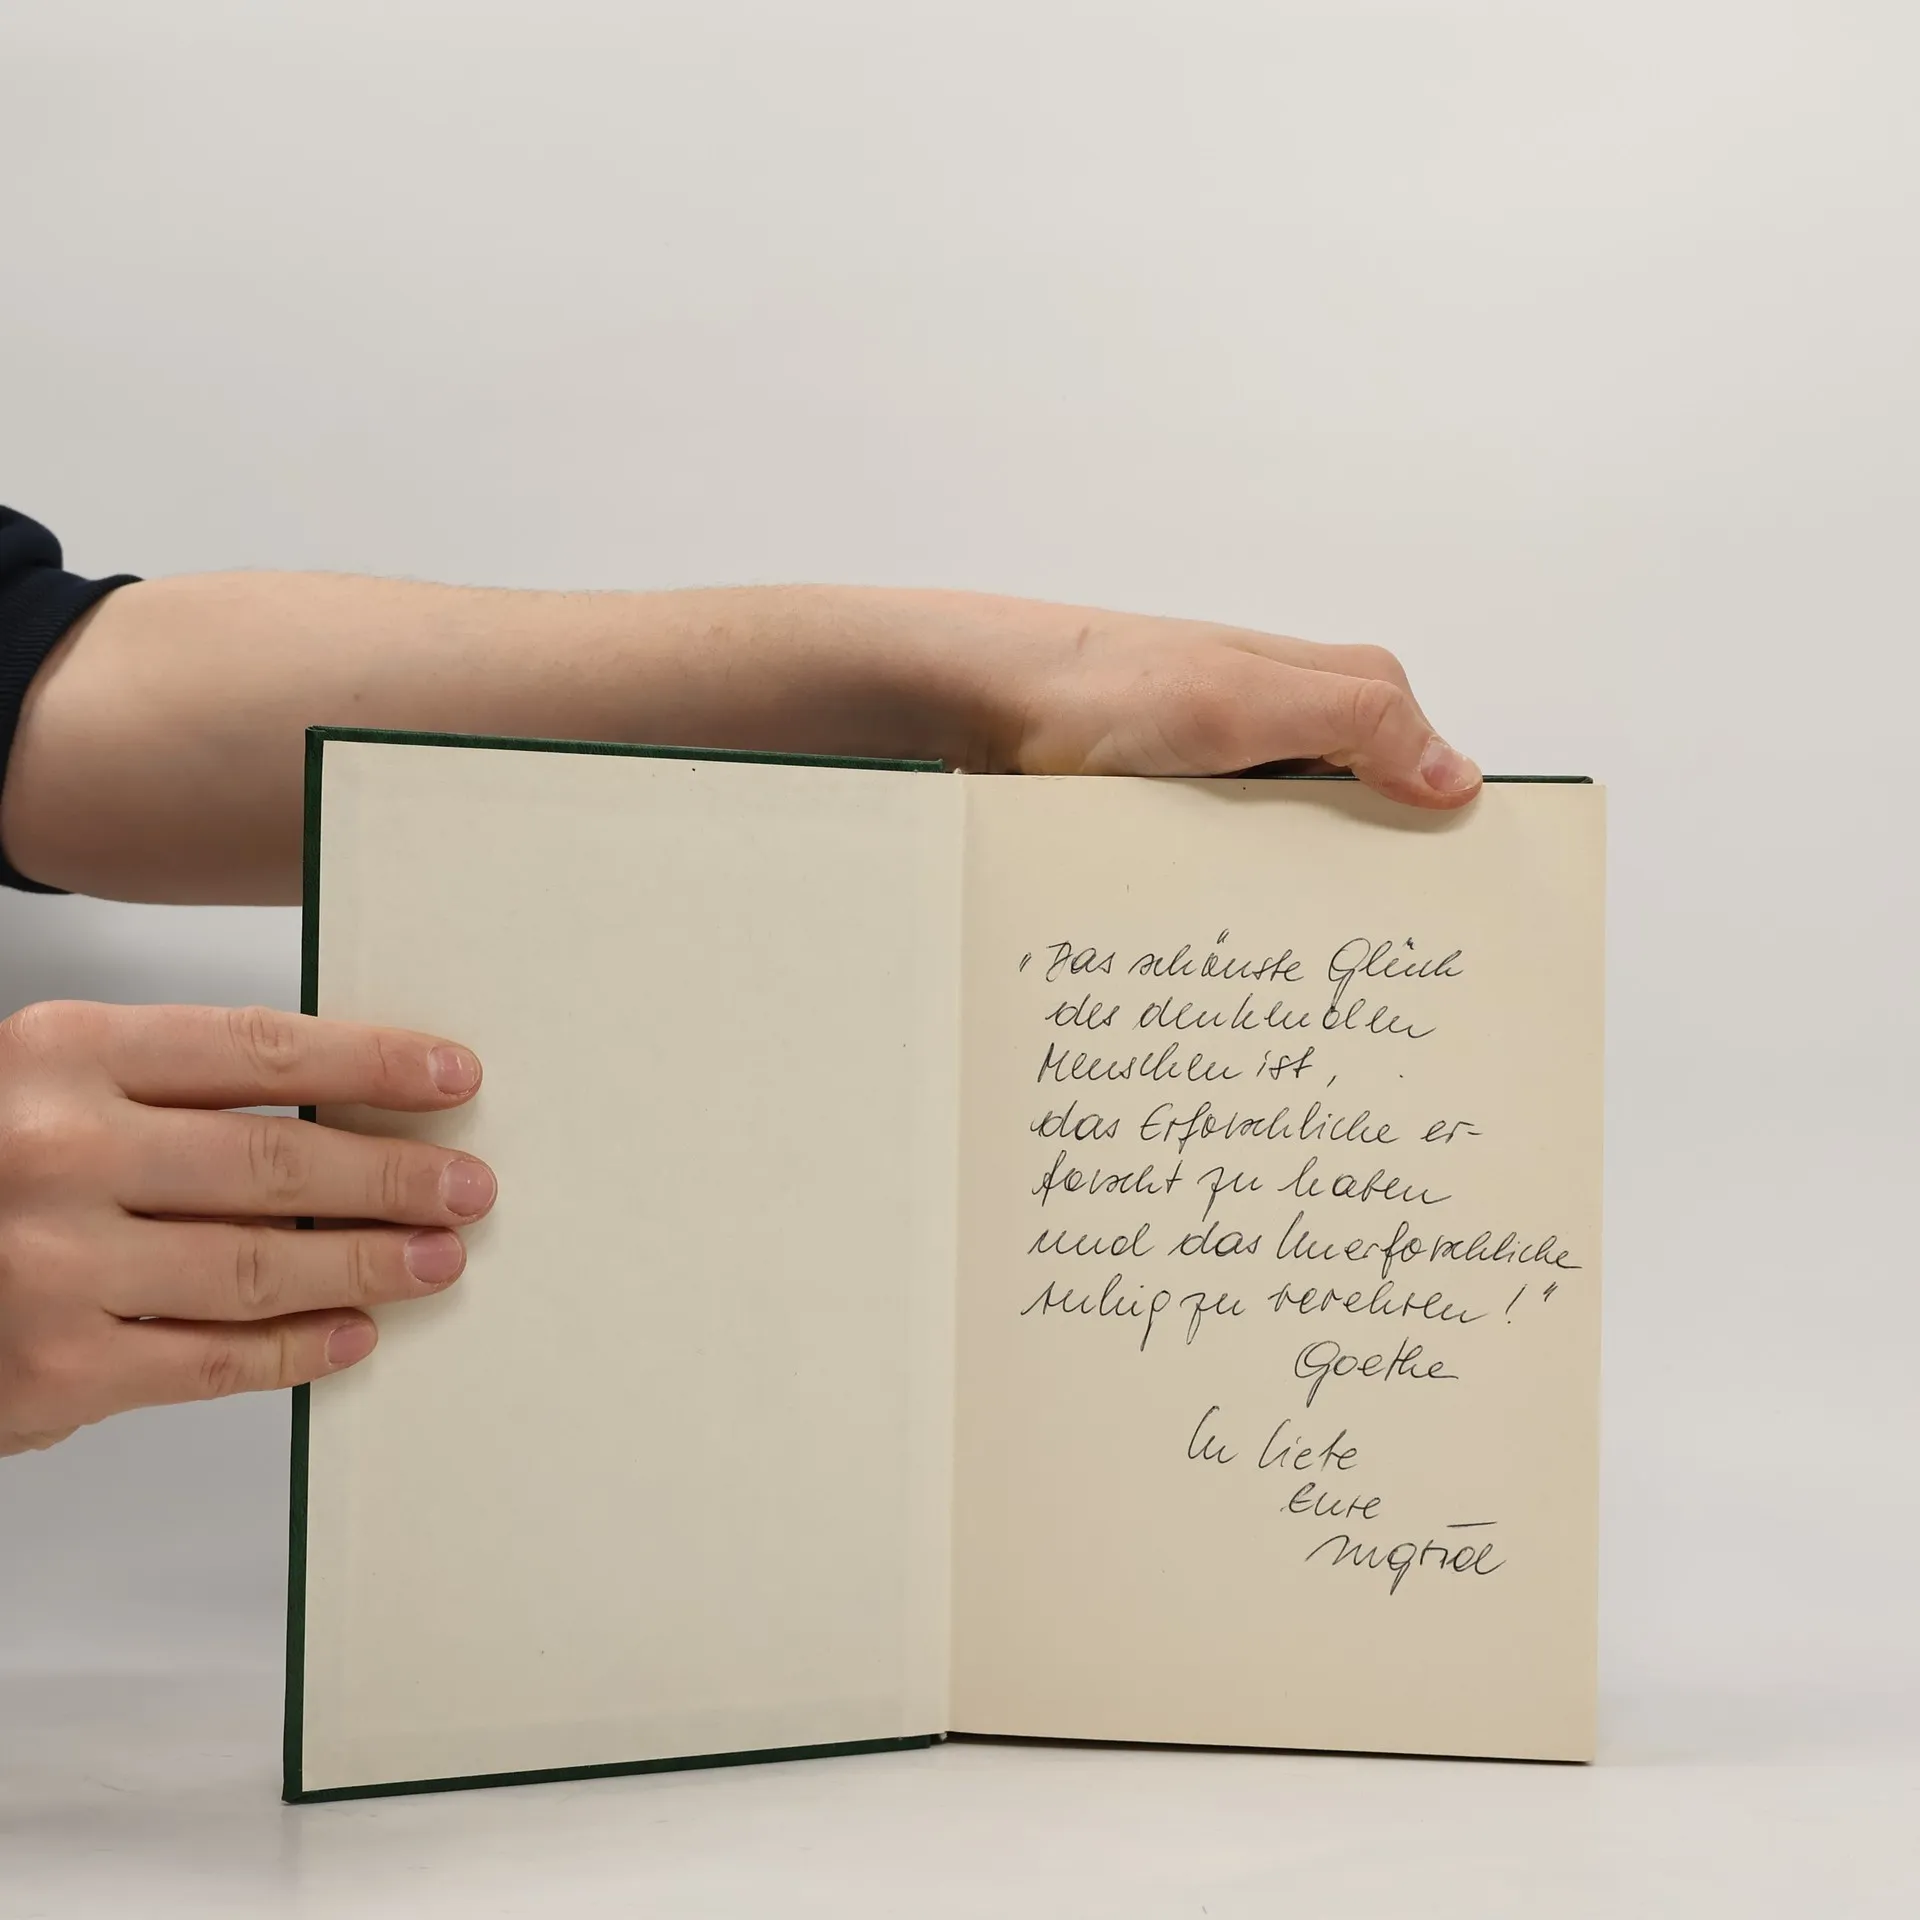 "Das schönste Glück
des denkenden
Menschen ist,
das Erforschliche er-
forscht zu haben
und das Unerforschliche
ruhig zu verehren!"
Goethe
In Liebe
Eure
Ingrid